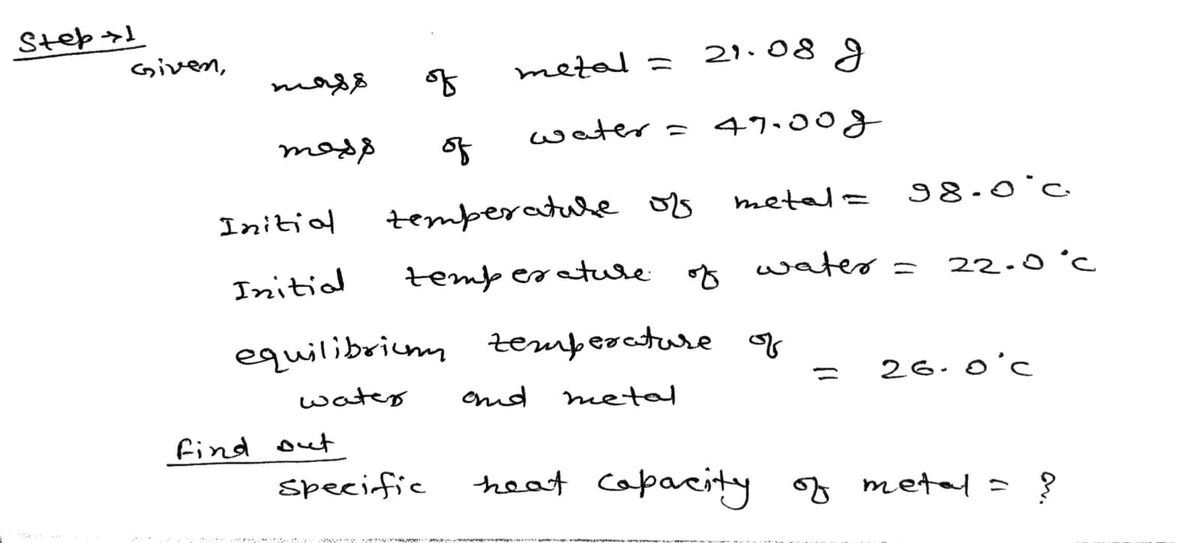 Step→1
Given,
mass of metal = 21.08 g
mass of water = 47.00g
Initial temperature of metal = 98.0°C
Initial temperature of water = 22.0°C
equilibrium temperature of
water and metal = 26.0°C
find out
specific heat capacity of metal = ?